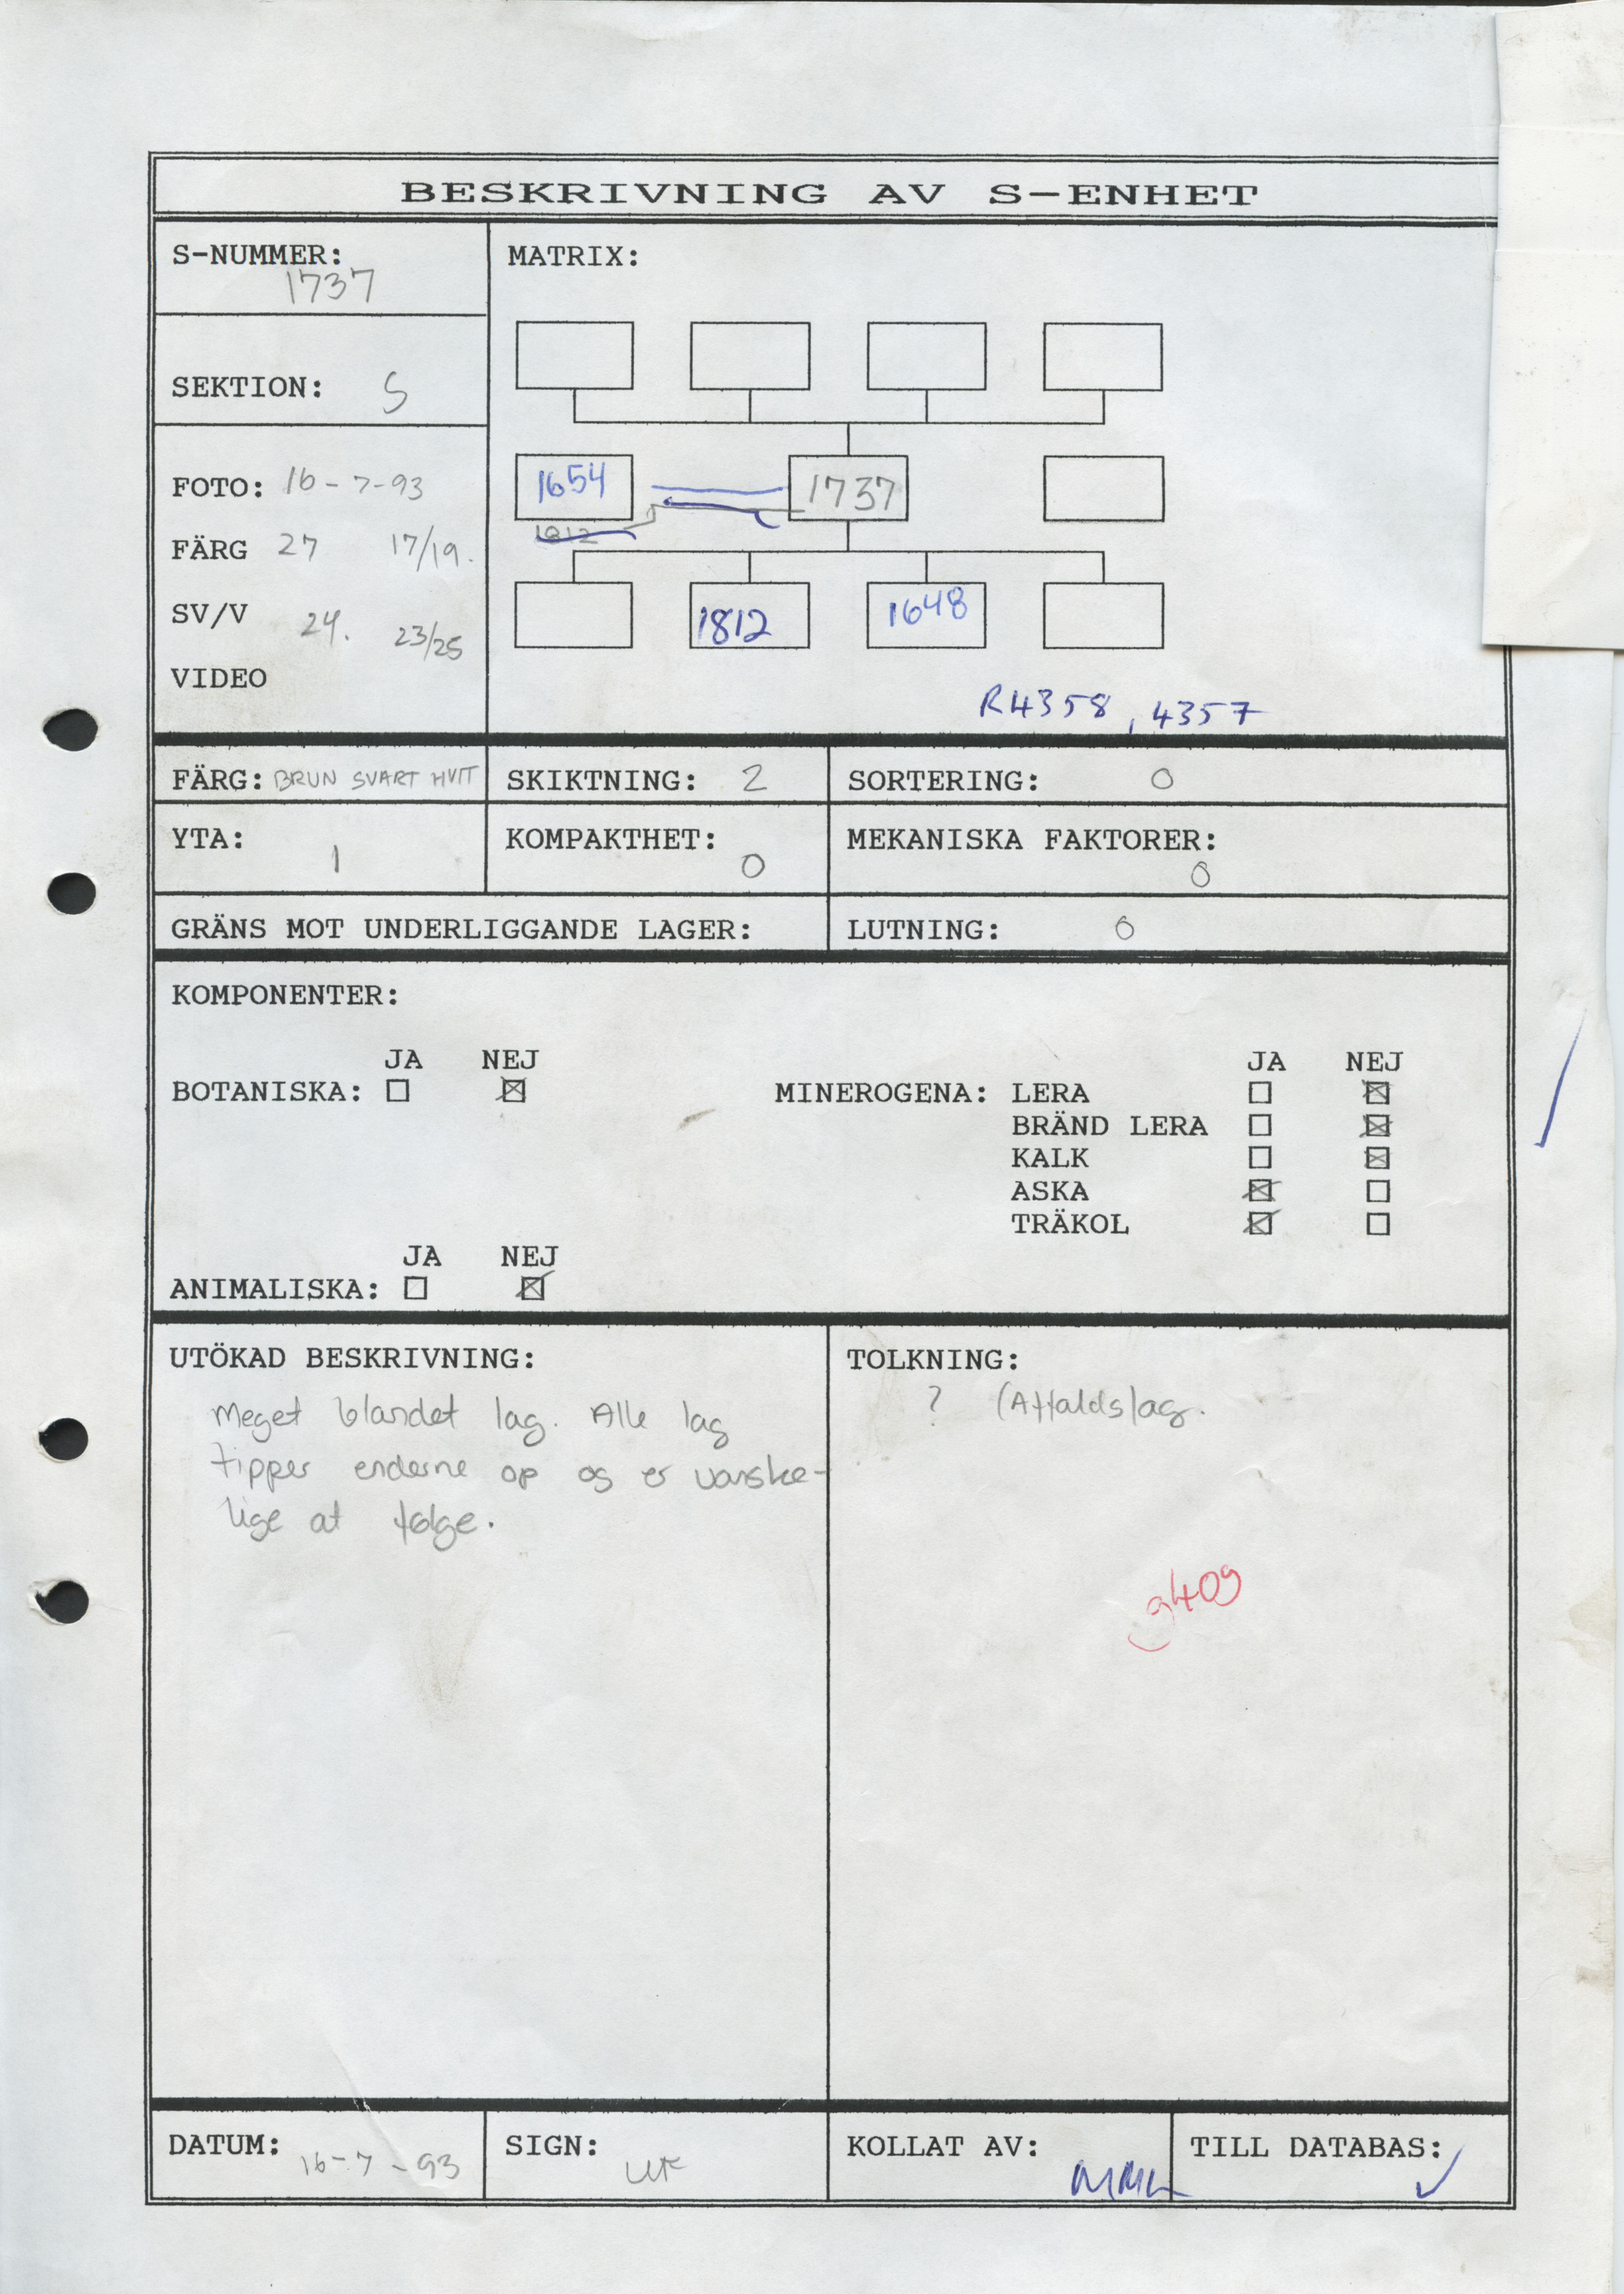 BESKRIVNING AV S-ENHET
S-NUMMER:
1737
MATRIX:
SEKTION: S
FOTO: 16-7-93
FÄRG 27 17/19.
SV/V 24. 23/25
VIDEO
1654 1737
1812
1812 1648
R4358, 4357
FÄRG: BRUN SVART HVIT
SKIKTNING: 2
SORTERING: 0
YTA: 1
KOMPAKTHET: 0
MEKANISKA FAKTORER: 0
GRÄNS MOT UNDERLIGGANDE LAGER:
LUTNING: 0
KOMPONENTER:
JA NEJ
BOTANISKA: ☐ ☒
JA NEJ
MINEROGENA: LERA ☐ ☒
BRÄND LERA ☐ ☒
KALK ☐ ☒
ASKA ☒ ☐
TRÄKOL ☒ ☐
JA NEJ
ANIMALISKA: ☐ ☒
UTÖKAD BESKRIVNING:
Meget blandet lag. Alle lag
tipper enderne op og er vanske-
lige at følge.
TOLKNING:
? (Affaldslag.
g409
DATUM: 16-7-93
SIGN:
KOLLAT AV:
TILL DATABAS: ✓